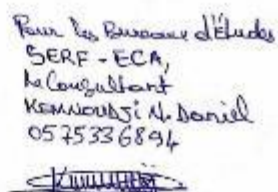 Pour les Bureaux d'Études
SERF - ECA,
Le Consultant
KEMNOUDJI N. Daniel
0575336894